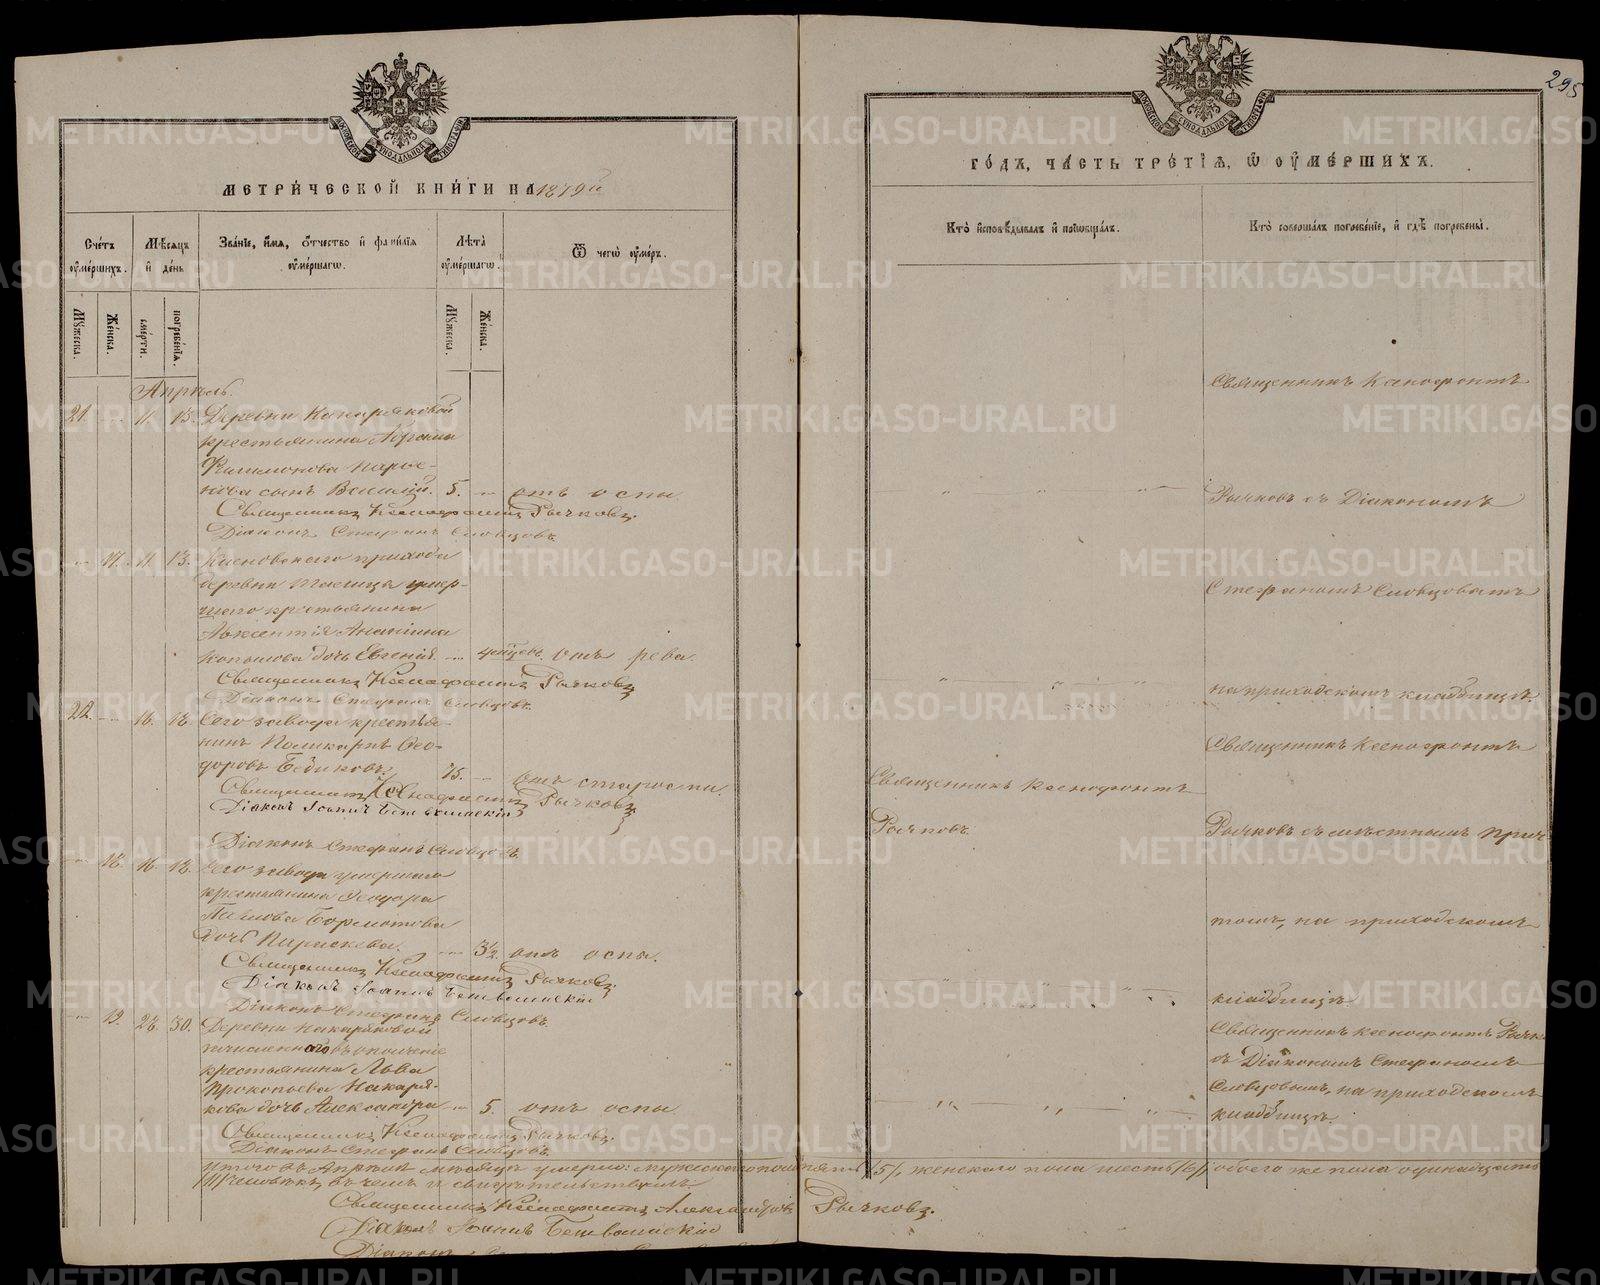 МЕТРИЧЕСКОЙ КНИГИ НА 1879й
Счетъ умершихъ.
Мѣсяцъ и день
Званіе, имя, отчество и фамилія умершаго.
Лѣта умершаго.
Ѿ чегѡ умеръ.
Мужеска.
Женска.
смерти.
погребенія.
Мужеска.
Женска.
Апрѣль.
21. 11. 13. Деревни
крестьянина
Филимонова
сынъ Василій. 5. отъ оспы.
Священникъ Ксенофонтъ Рычковъ.
Діаконъ Стефанъ Словцовъ.
17. 11. 13. прихода
деревни умер-
шаго крестьянина
Авксентія Ананіина
дочь Евгенія. отъ рева.
Священникъ Ксенофонтъ Рычковъ
Діаконъ Стефанъ Словцовъ.
22. 16. 18. Сего завода крестья-
нинъ Поликарпъ Ѳео-
доровъ 75. отъ старости.
Священникъ Ксенофонтъ Рычковъ
Діаконъ Іоаннъ
Діаконъ Стефанъ Словцовъ.
18. 16. 18. Сего завода умершаго
крестьянина Ѳеодора
Павлова Бормотова
дочь Параскева. 3½ отъ оспы.
Священникъ Ксенофонтъ Рычковъ
Діаконъ Іоаннъ
Діаконъ Стефанъ Словцовъ.
19. 28. 30. Деревни
ополченіе
крестьянина Льва
Прокопьева Накаря-
кова дочь Александра 5. отъ оспы
Священникъ Ксенофонтъ Рычковъ.
Діаконъ Стефанъ Словцовъ.
Итого въ Апрѣлѣ мѣсяцѣ умерло: мужескаго пола пять /5/, женскаго пола шесть /6/, обоего же пола одинадцать
/11/ человѣкъ, въ чемъ и свидѣтельствуемъ.
Священникъ Ксенофонтъ Александровъ Рычковъ.
Діаконъ Іоаннъ
Діаконъ
295
ГОДЪ, ЧАСТЬ ТРЕТІЯ, Ѿ УМЕРШИХЪ.
Кто исповѣдывалъ и пріобщалъ.
Кто совершалъ погребеніе, и гдѣ погребены.
Священникъ Ксенофонтъ
Рычковъ съ Діакономъ
Стефаномъ Словцовымъ
на приходскомъ кладбищѣ.
Священникъ Ксенофонтъ
Священникъ Ксенофонтъ
Рычковъ.
Рычковъ съ мѣстнымъ прич-
томъ, на приходскомъ
кладбищѣ.
Священникъ Ксенофонтъ Рычк.
съ Діакономъ Стефаномъ
Словцовымъ, на приходскомъ
кладбищѣ.
METRIKI.GASO-URAL.RU